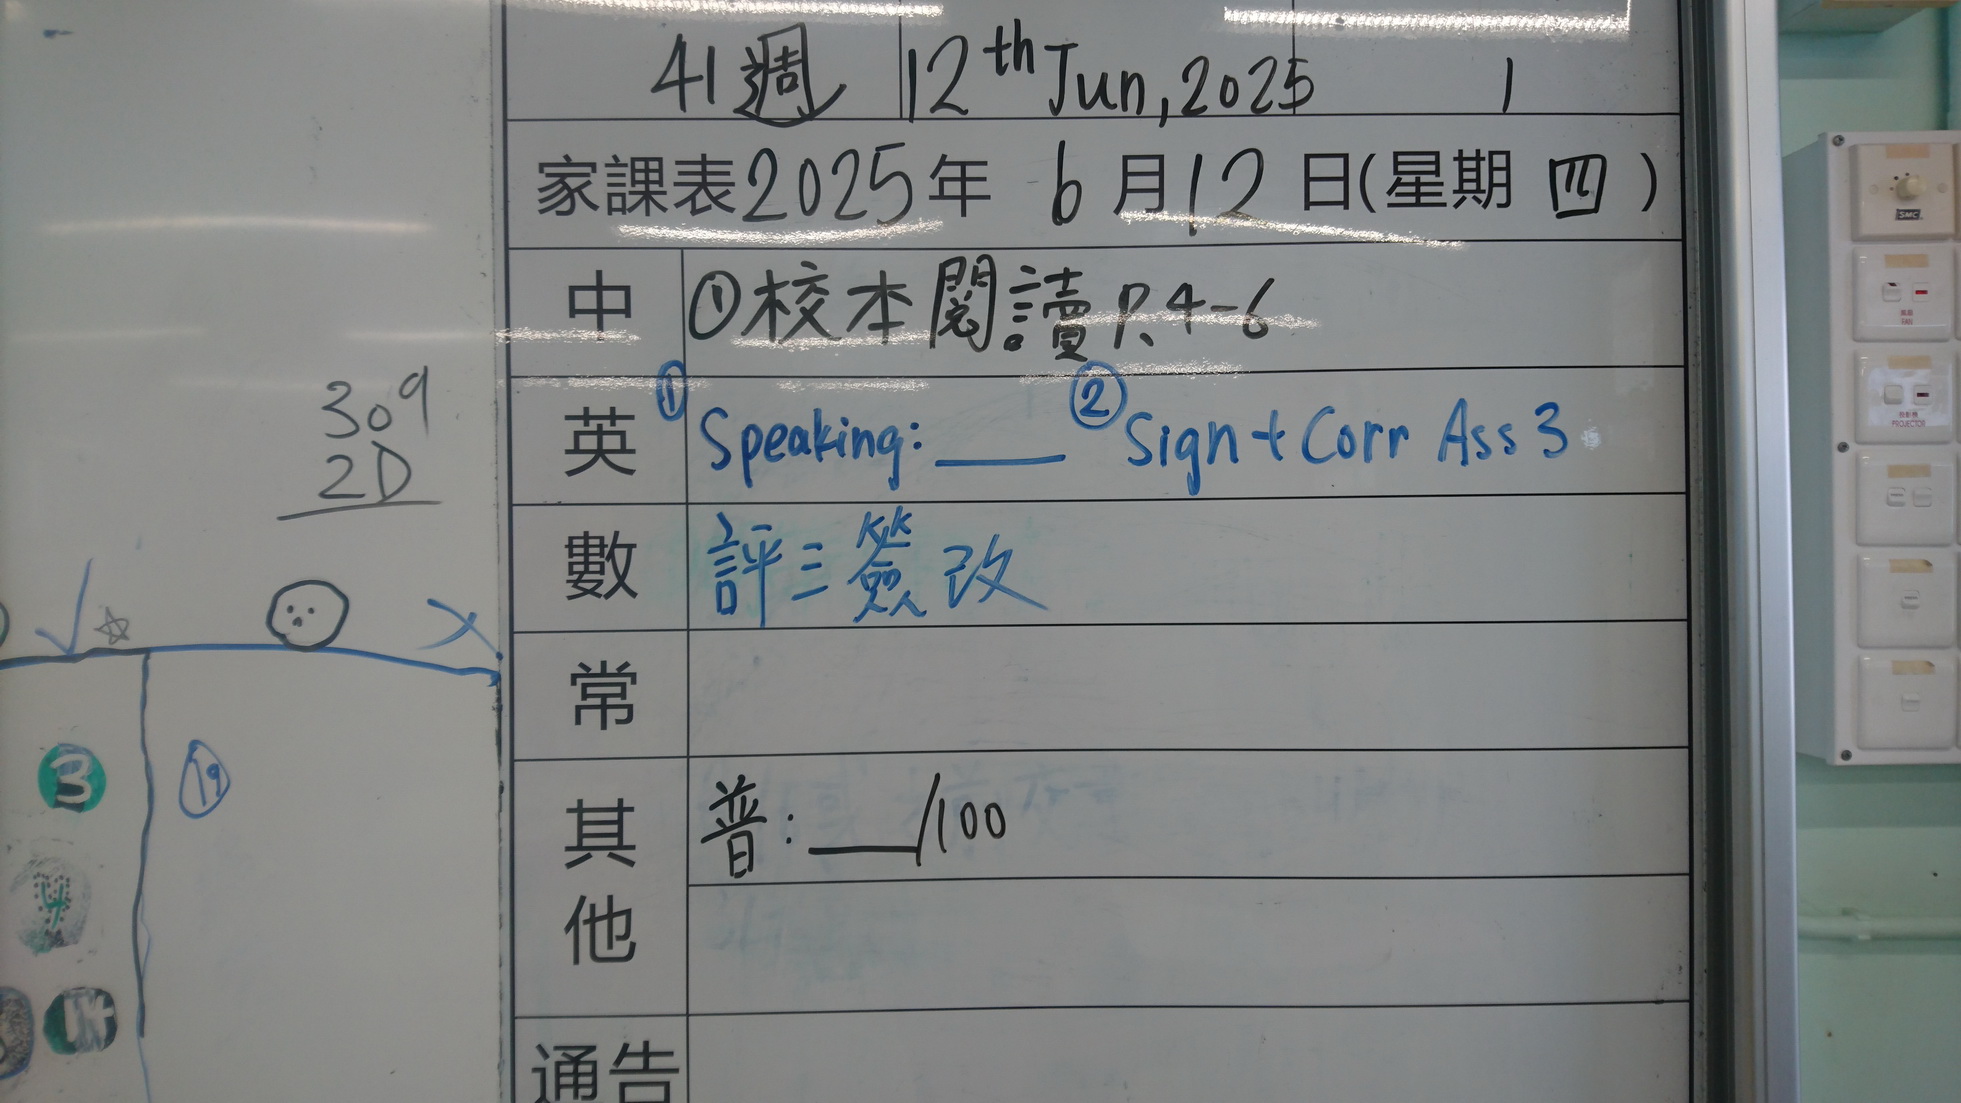 41週 12th Jun, 2025 1
家課表2025年 6月12日(星期 四 )
中 ①校本閱讀 P.4-6
英 ① Speaking: ____ ② Sign + Corr Ass 3
數 評三簽改
常
其他 普: ____/100
通告
309
20
3
19
4
SMC
FAN
投影機
PROJECTOR